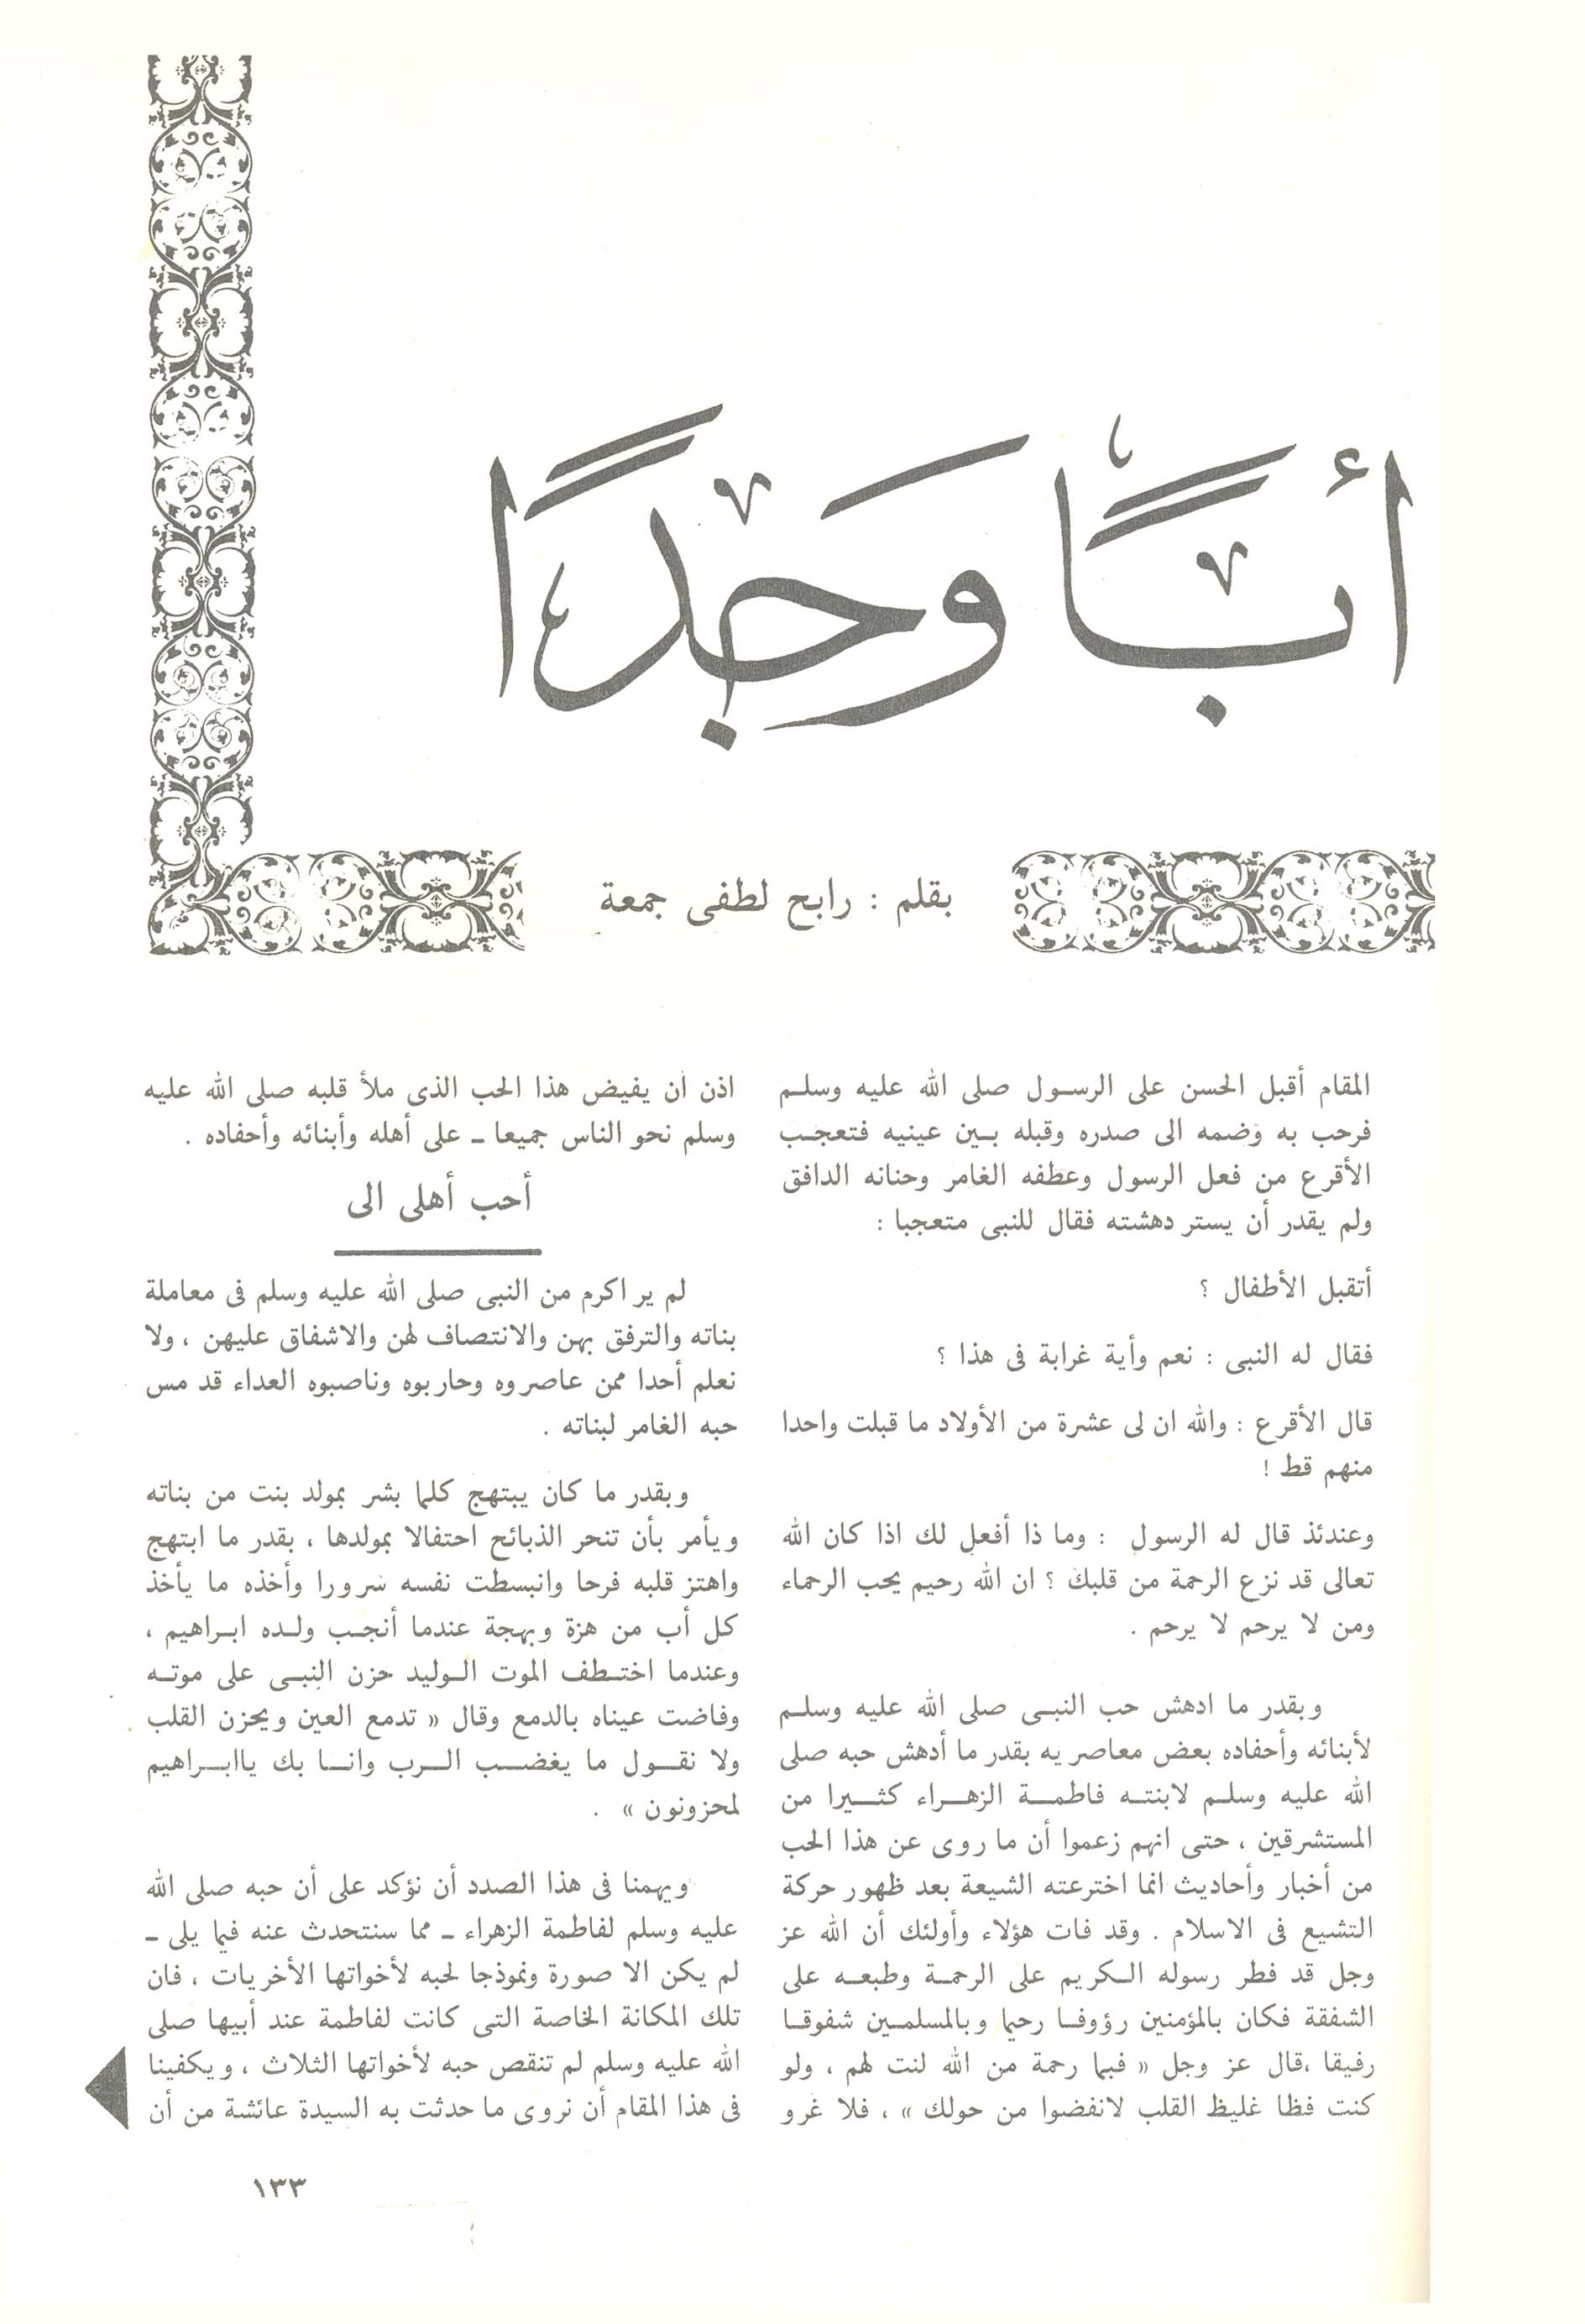 أَبًّا وَجَدًّا
بقلم : رابح لطفى جمعة
المقام أقبل الحسن على الرسول صلى الله عليه وسلم
فرحب به وضمه الى صدره وقبله بين عينيه فتعجب
الأقرع من فعل الرسول وعطفه الغامر وحنانه الدافق
ولم يقدر أن يستر دهشته فقال للنبى متعجبا :
أتقبل الأطفال ؟
فقال له النبى : نعم وأية غرابة فى هذا ؟
قال الأقرع : والله ان لى عشرة من الأولاد ما قبلت واحدا
منهم قط !
وعندئذ قال له الرسول : وما ذا أفعل لك اذا كان الله
تعالى قد نزع الرحمة من قلبك ؟ ان الله رحيم يحب الرحماء
ومن لا يرحم لا يرحم .
وبقدر ما ادهش حب النبى صلى الله عليه وسلم
لأبنائه وأحفاده بعض معاصريه بقدر ما أدهش حبه صلى
الله عليه وسلم لابنته فاطمة الزهراء كثيرا من
المستشرقين ، حتى انهم زعموا أن ما روى عن هذا الحب
من أخبار وأحاديث انما اخترعته الشيعة بعد ظهور حركة
التشيع فى الاسلام . وقد فات هؤلاء وأولئك أن الله عز
وجل قد فطر رسوله الكريم على الرحمة وطبعه على
الشفقة فكان بالمؤمنين رؤوفا رحيما وبالمسلمين شفوقا
رفيقا ،قال عز وجل « فبما رحمة من الله لنت لهم ، ولو
كنت فظا غليظ القلب لانفضوا من حولك » ، فلا غرو
اذن ان يفيض هذا الحب الذى ملأ قلبه صلى الله عليه
وسلم نحو الناس جميعا ـ على أهله وأبنائه وأحفاده .
أحب أهلى الى
لم ير اكرم من النبى صلى الله عليه وسلم فى معاملة
بناته والترفق بهن والانتصاف لهن والاشفاق عليهن ، ولا
نعلم أحدا ممن عاصروه وحاربوه وناصبوه العداء قد مس
حبه الغامر لبناته .
وبقدر ما كان يبتهج كلما بشر بمولد بنت من بناته
ويأمر بأن تنحر الذبائح احتفالا بمولدها ، بقدر ما ابتهج
واهتز قلبه فرحا وانبسطت نفسه سرورا وأخذه ما يأخذ
كل أب من هزة وبهجة عندما أنجب ولده ابراهيم ،
وعندما اختطف الموت الوليد حزن النبى على موته
وفاضت عيناه بالدمع وقال « تدمع العين ويحزن القلب
ولا نقول ما يغضب الرب وانا بك ياابراهيم
لمحزونون » .
ويهمنا فى هذا الصدد أن نؤكد على أن حبه صلى الله
عليه وسلم لفاطمة الزهراء ـ مما سنتحدث عنه فيما يلى ـ
لم يكن الا صورة ونموذجا لحبه لأخواتها الأخريات ، فان
تلك المكانة الخاصة التى كانت لفاطمة عند أبيها صلى
الله عليه وسلم لم تنقص حبه لأخواتها الثلاث ، ويكفينا
فى هذا المقام أن نروى ما حدثت به السيدة عائشة من أن
١٣٣